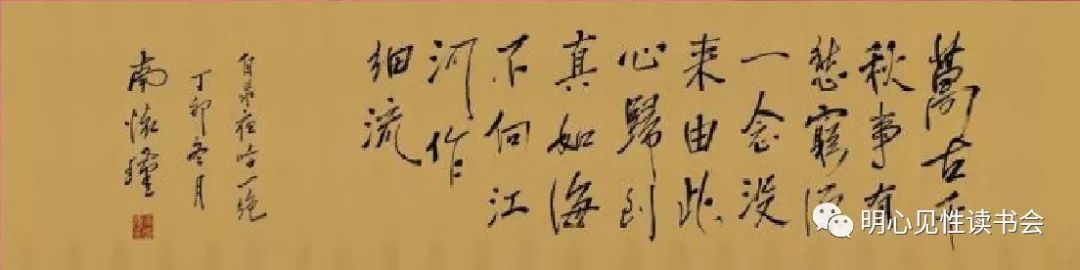 萬古千
秋事有
愁窮源
一念没
来由此
心歸到
真如海
不向江
河作
細流
自录夜吟一绝
丁卯冬月
南懷瑾
明心见性读书会